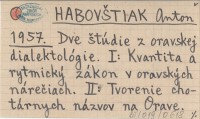 HABOVŠTIAK Anton
1957. Dve štúdie z oravskej
dialektológie. I: Kvantita a
rytmický zákon v oravských
nárečiach. II: Tvorenie cho-
tárnych názvov na Orave.